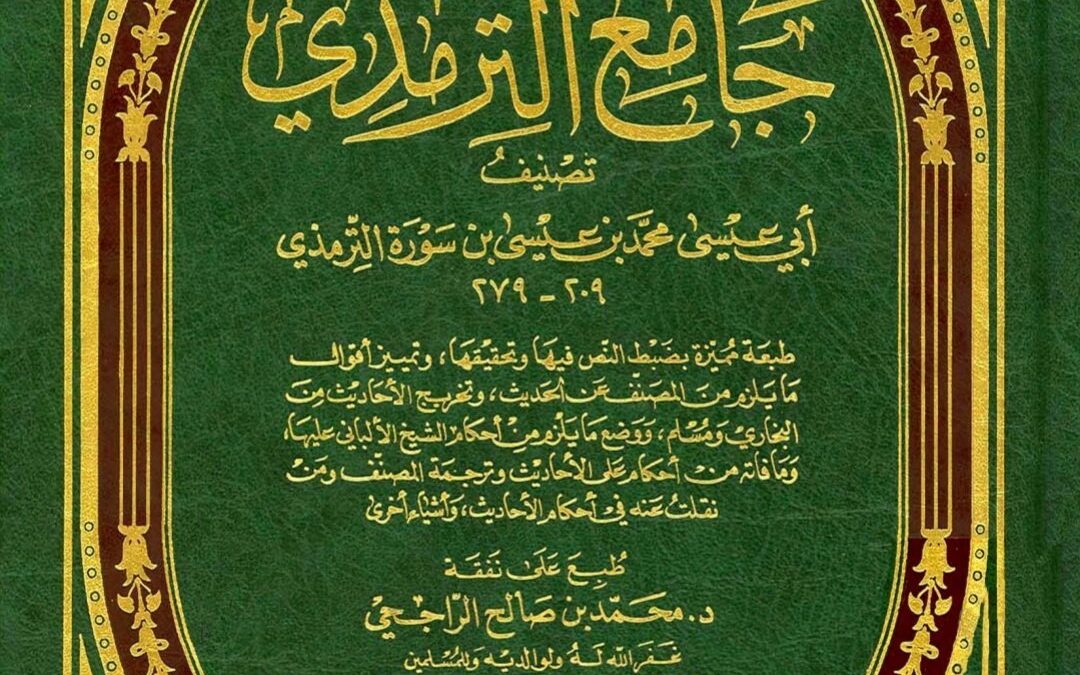 جَامِعُ التِّرمِذِي
تصْنيفُ
أبي عيسى محمّد بن عيسى بن سَوْرَة التِّرمذي
٢٠٩ - ٢٧٩
طبعَة مُميّزة بضَبط النّص فيها وتحقيقها، وتمييز أقوال
مَا يَلزم منَ المصَنّف عَن الحَديث، وتخريج الأحَاديث مِنَ
البخاري وَمُسْلم، وَوَضع مَا يَلْزم مِن أحكام الشيخ الألبَاني عليهَا،
وَمَا فاته منْ أحكام عَلى الأحَاديث وترجمَة المصنّف ومَنْ
نقلتُ عَنه في أحكام الأحَاديث، وَأشياء أخرى
طُبِعَ عَلى نَفَقَة
د. محَمّد بن صَالح الرّاجحي
غفَر الله لهُ ولوالديه وللمُسلمين